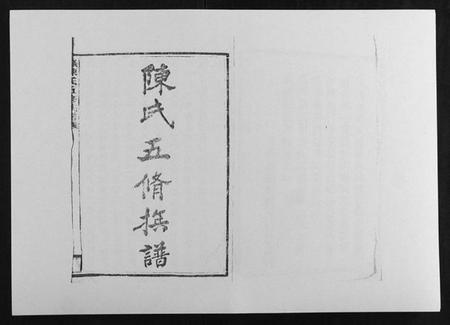 陳氏五脩族譜